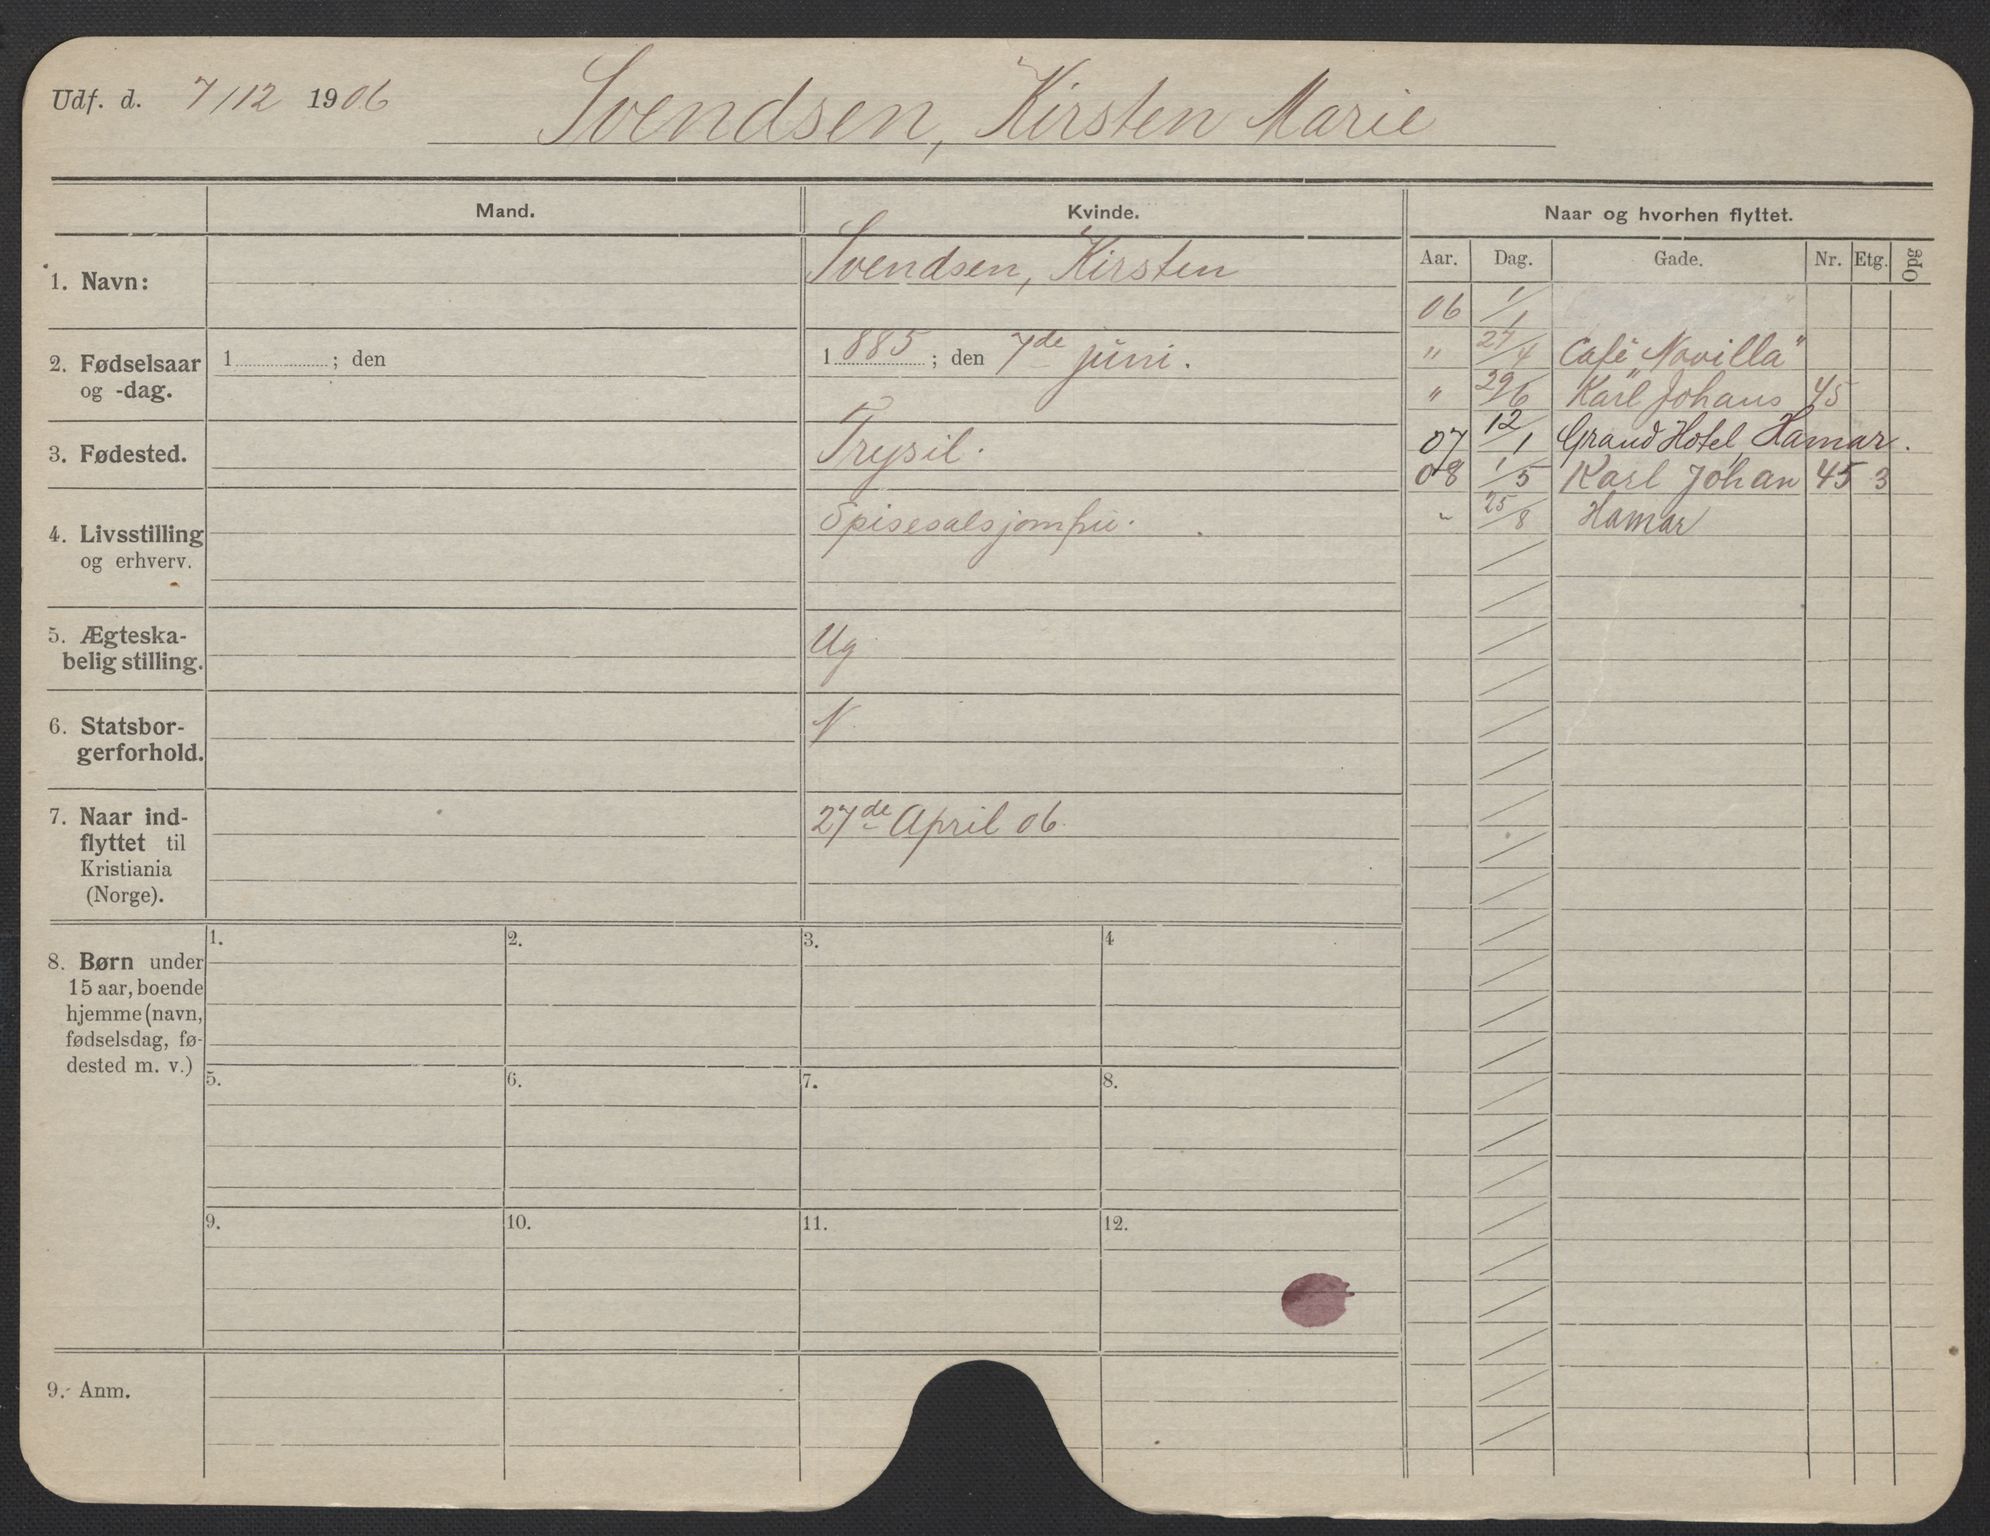 Udf. d. 7/12 1906 Svendsen, Kirsten Marie
Mand. Kvinde. Naar og hvorhen flyttet.
Aar. Dag. Gade. Nr. Etg. Opg
1. Navn: Svendsen, Kirsten
06 1/1
" 27/4 Café Novilla"
" 29/6 Karl Johans 45
07 12/1 Grand Hotel, Hamar.
08 1/5 Karl Johan 45 3
" 25/8 Hamar
2. Fødselsaar
og -dag.
1 ; den
1 885 ; den 7de juni.
3. Fødested. Trysil.
4. Livsstilling
og erhverv.
Spisesalsjomfru.
5. Ægteska-
belig stilling.
Ug
6. Statsbor-
gerforhold.
N
7. Naar ind-
flyttet til
Kristiania
(Norge).
27de April 06.
8. Børn under
15 aar, boende
hjemme (navn,
fødselsdag, fø-
dested m. v.)
1. 2. 3. 4
5. 6. 7. 8.
9. 10. 11. 12.
9. Anm.